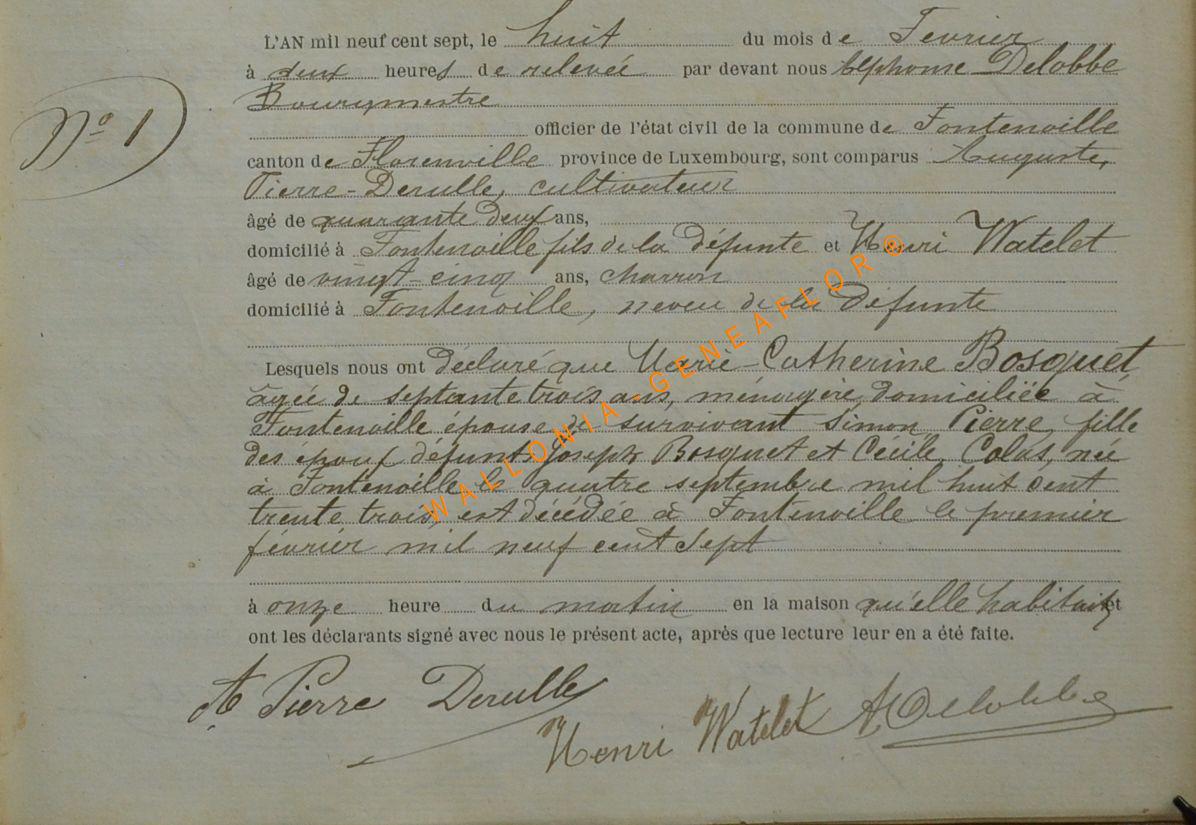 L'AN mil neuf cent sept, le huit du mois de Fevrier
à deux heures de relevée par devant nous Alphonse Delobbe
Bourgmestre
officier de l'état civil de la commune de Fontenoille
N° 1
canton de Florenville province de Luxembourg, sont comparus Auguste,
Pierre-Derulle, cultivateur
âgé de quarante deux ans,
domicilié à Fontenoille fils de la défunte et Henri Watelet
âgé de vingt-cinq ans, charron
domicilié à Fontenoille, neveu de la défunte
Lesquels nous ont déclaré que Marie-Catherine Bosquet
âgée de septante trois ans, ménagère, domiciliée à
Fontenoille épouse de survivant Simon Pierre, fille
des epoux défunts Joseph Bosquet et Cécile Colas, née
à Fontenoille le quatre septembre mil huit cent
trente trois, est décédée à Fontenoille le premier
février mil neuf cent sept
à onze heure du matin en la maison qu'elle habitait, et
ont les déclarants signé avec nous le présent acte, après que lecture leur en a été faite.
A Pierre Derulle
Henri Watelet ADelobbe
WALLONIA-GENEAFLOR®